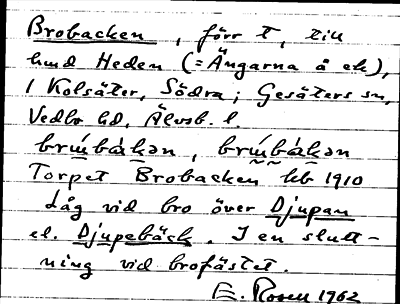 Brobacken, förr t, till
hmd Heden (= Ängarna å ek),
i Kolsäter, Södra; Gesäters sn,
Vedbo hd, Älvsb. l.
brẃbákən, brẃbàkən
Torpet Brobacken beb 1910
Låg vid bro över Djupan
el. Djupebäck. I en slutt-
ning vid brofästet.
E. Rosell 1962